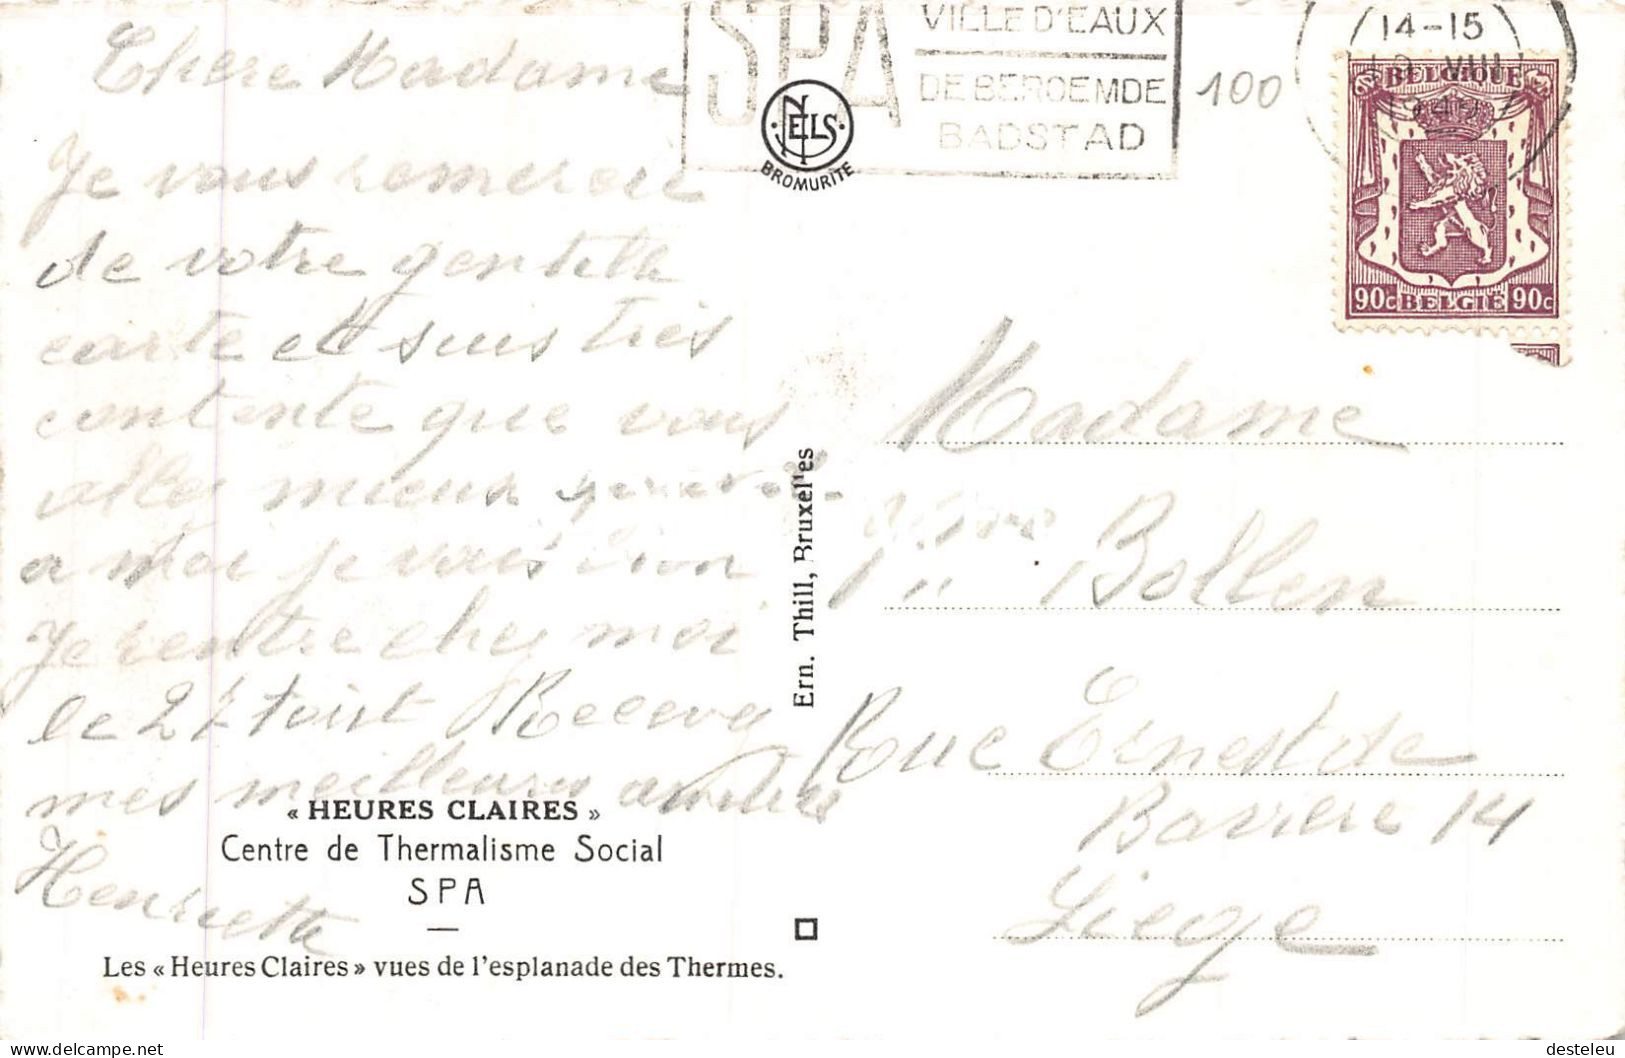 Chere Madame
Je vous remercie
de votre gentille
carte et suis très
contente que vous
allez mieux
a moi je vais bien
Je rentre chez moi
le 27 Aoist Recevez
mes meilleures
Henriette
« HEURES CLAIRES »
Centre de Thermalisme Social
SPA
Les « Heures Claires » vues de l'esplanade des Thermes.
NELS
BROMURITE
Ern. Thill, Bruxelles
SPA
VILLE D'EAUX
DE BEROEMDE
BADSTAD
100
14-15
VIII
BELGIQUE
90c BELGIË 90c
Madame
Bollen
Rue Ernest de
Bavière 14
Liege
www.delcampe.net
desteleu